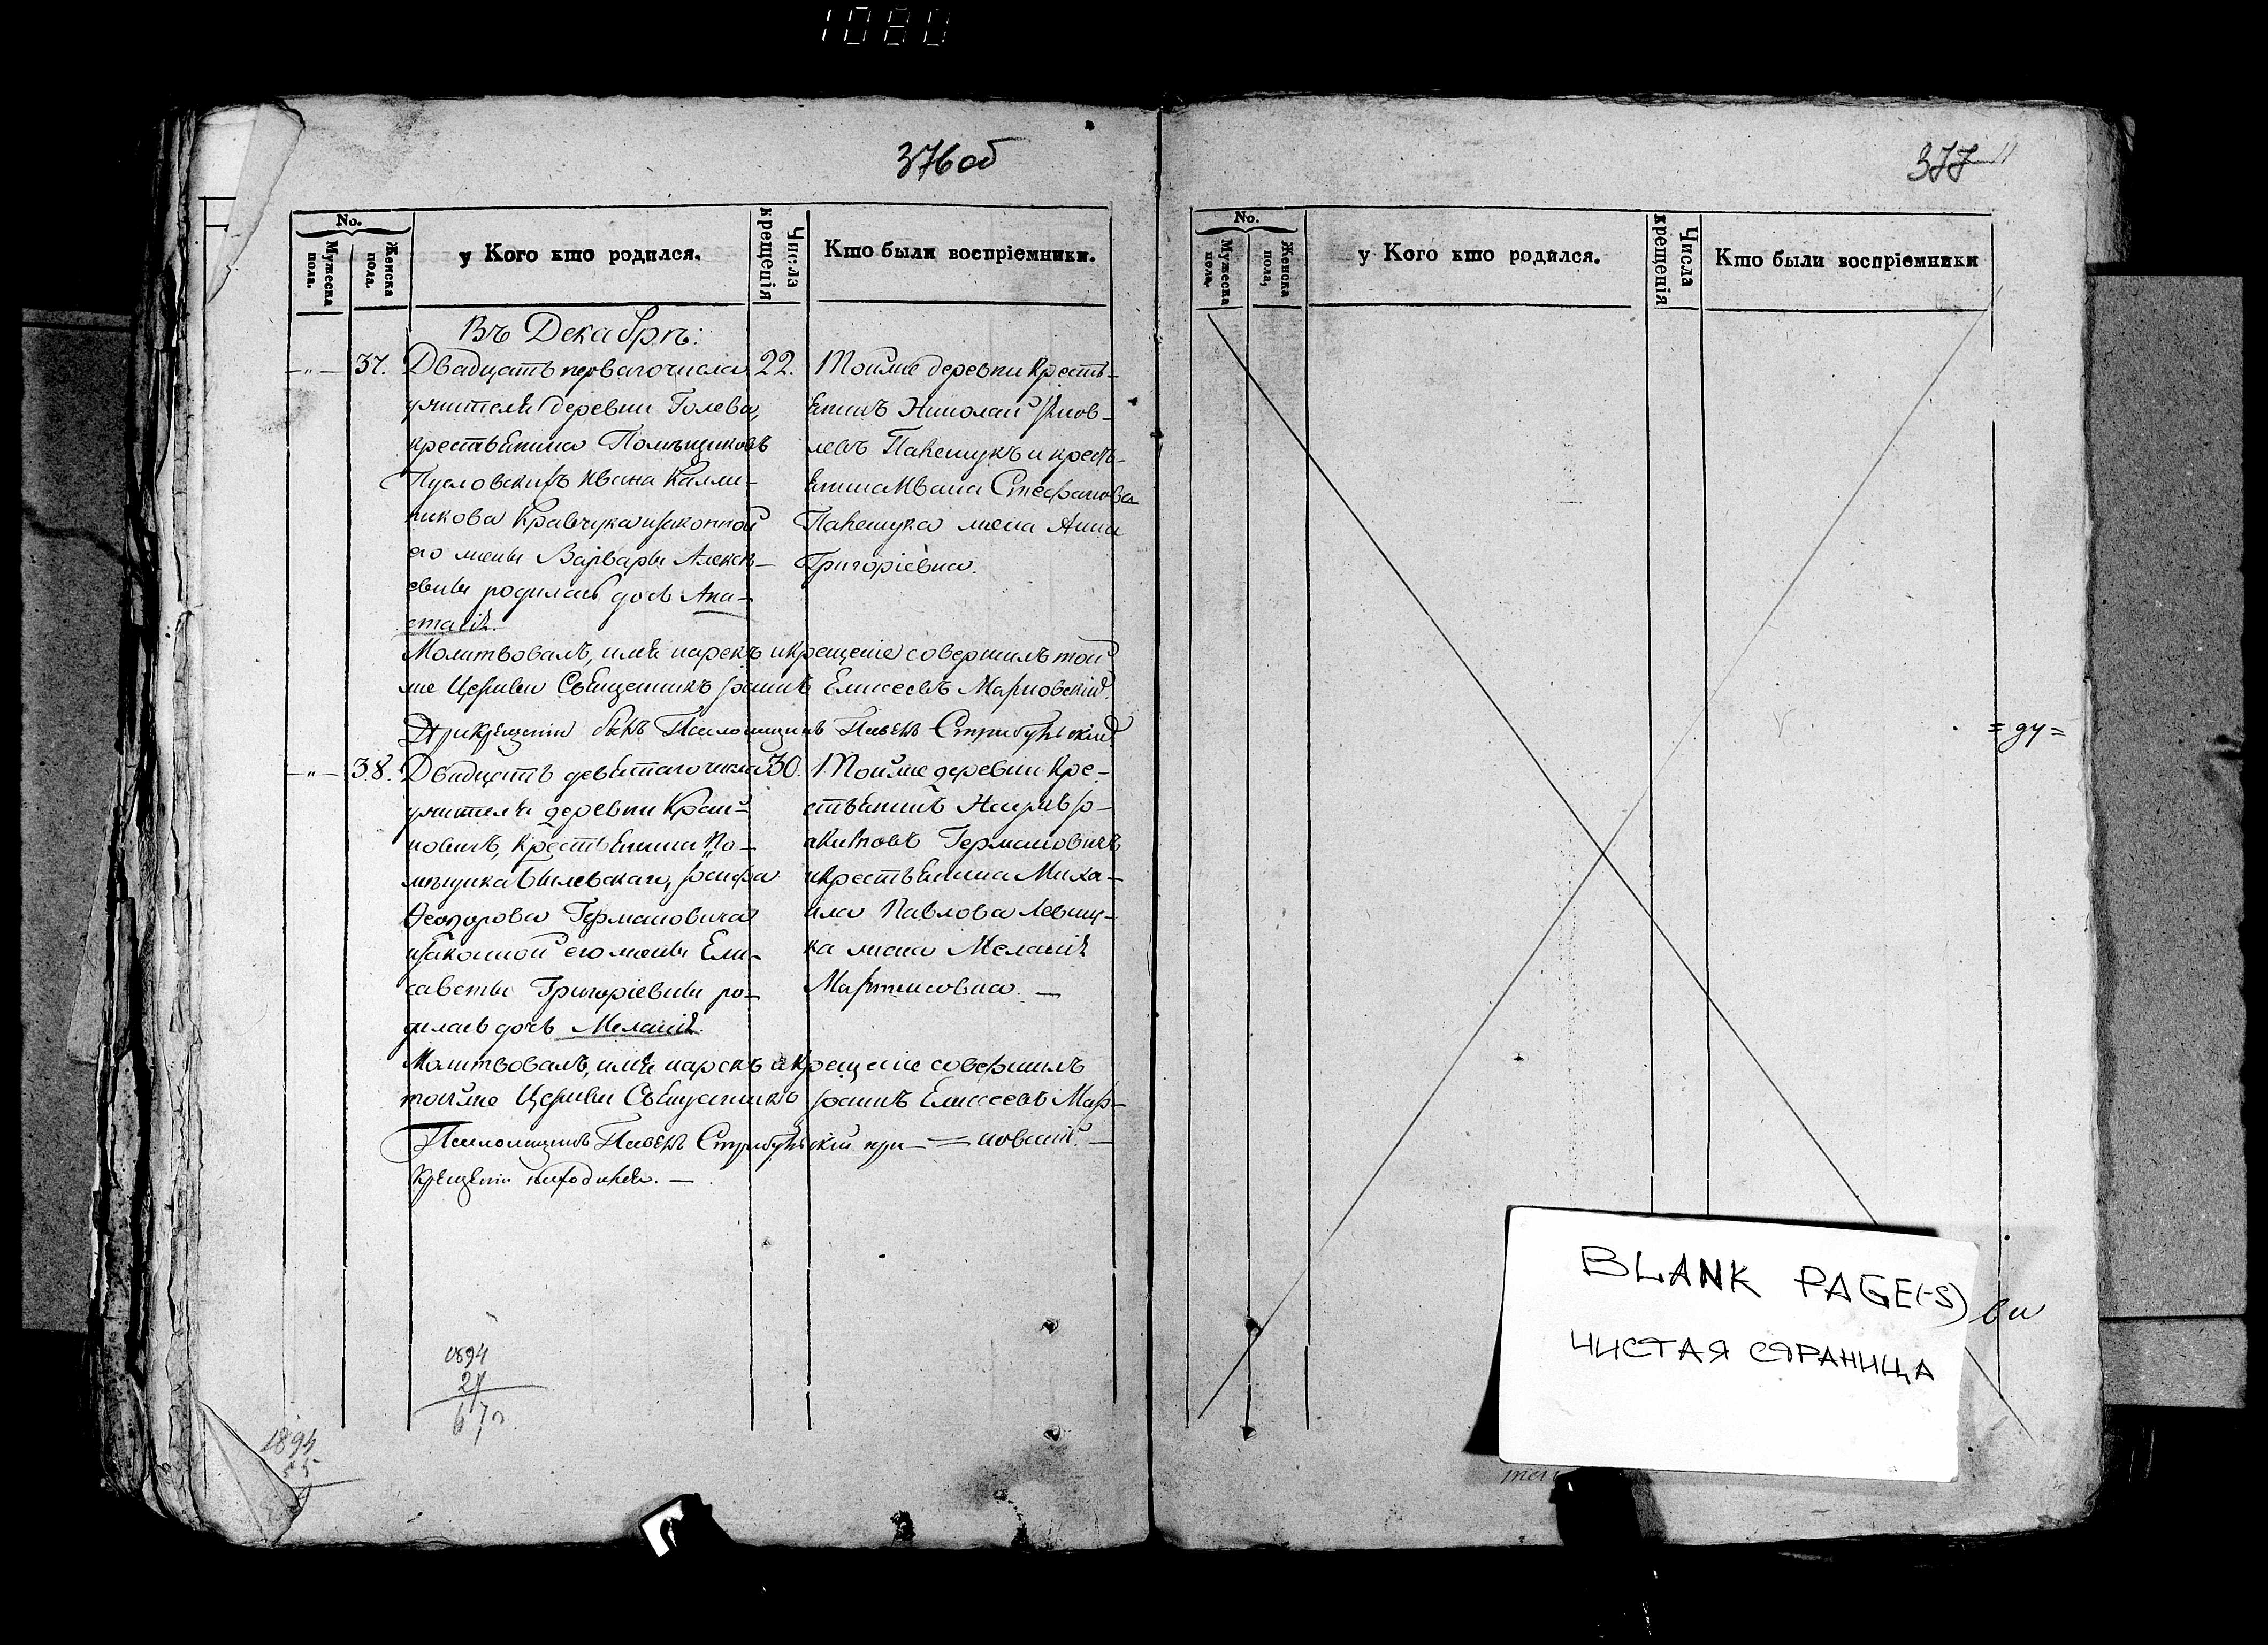 1080
376об
377
No.
Мужеска пола.
Женска пола.
у Кого кто родился.
Числа крещенія
Кто были воспріемники.
Въ Декабрѣ:
37. Двадцать перваго числа 22.
жителя деревни Голева,
крестьянина Помѣщиковъ
Пусловскихъ Ивана Калли-
никова Кравчука изаконной
его жены Варвары Алексѣ-
евны родилась дочь Ана-
стасія.
Тойже деревни Кресть-
янинъ Николай Яков-
левъ Панасюкъ и кресть-
янина Ивана Стефанова
жена Анна
Григоріевна.
Молитвовалъ, имя нарекъ икрещеніе совершилъ той
же Церкви Священникъ Іоаннъ Елисеевъ Марковскій.
При крещеніи былъ Псаломщикъ
38. Двадцать девятаго числа 30.
жителя деревни Край-
новичъ, Крестьянина По-
мѣщика
Ѳеодорова Германовича
изаконной его жены Ели-
саветы Григоріевны ро-
дилась дочь Меланія.
Тойже деревни Кре-
стьянинъ
Германовичъ
икрестьянина Миха-
ила Павлова Левчу-
ка жена Меланія
Мартиновна. —
Молитвовалъ, имя нарекъ икрещеніе совершилъ
тойже Церкви Священникъ Іоаннъ Елисеевъ Мар-
Псаломщикъ при — = ковскій. —
крещеніи находился. —
1894
No.
Мужеска пола.
Женска пола,
у Кого кто родился.
Числа крещенія
Кто были воспріемники
= ду =
BLANK PAGE(-S)
ЧИСТАЯ СТРАНИЦА
ви